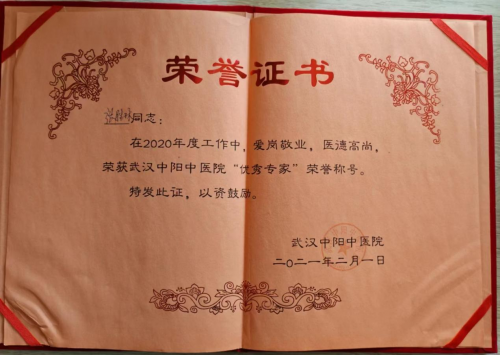 荣誉证书
同志：
在2020年度工作中，爱岗敬业，医德高尚，
荣获武汉中阳中医院“优秀专家”荣誉称号。
特发此证，以资鼓励。
武汉中阳中医院
二〇二一年二月一日